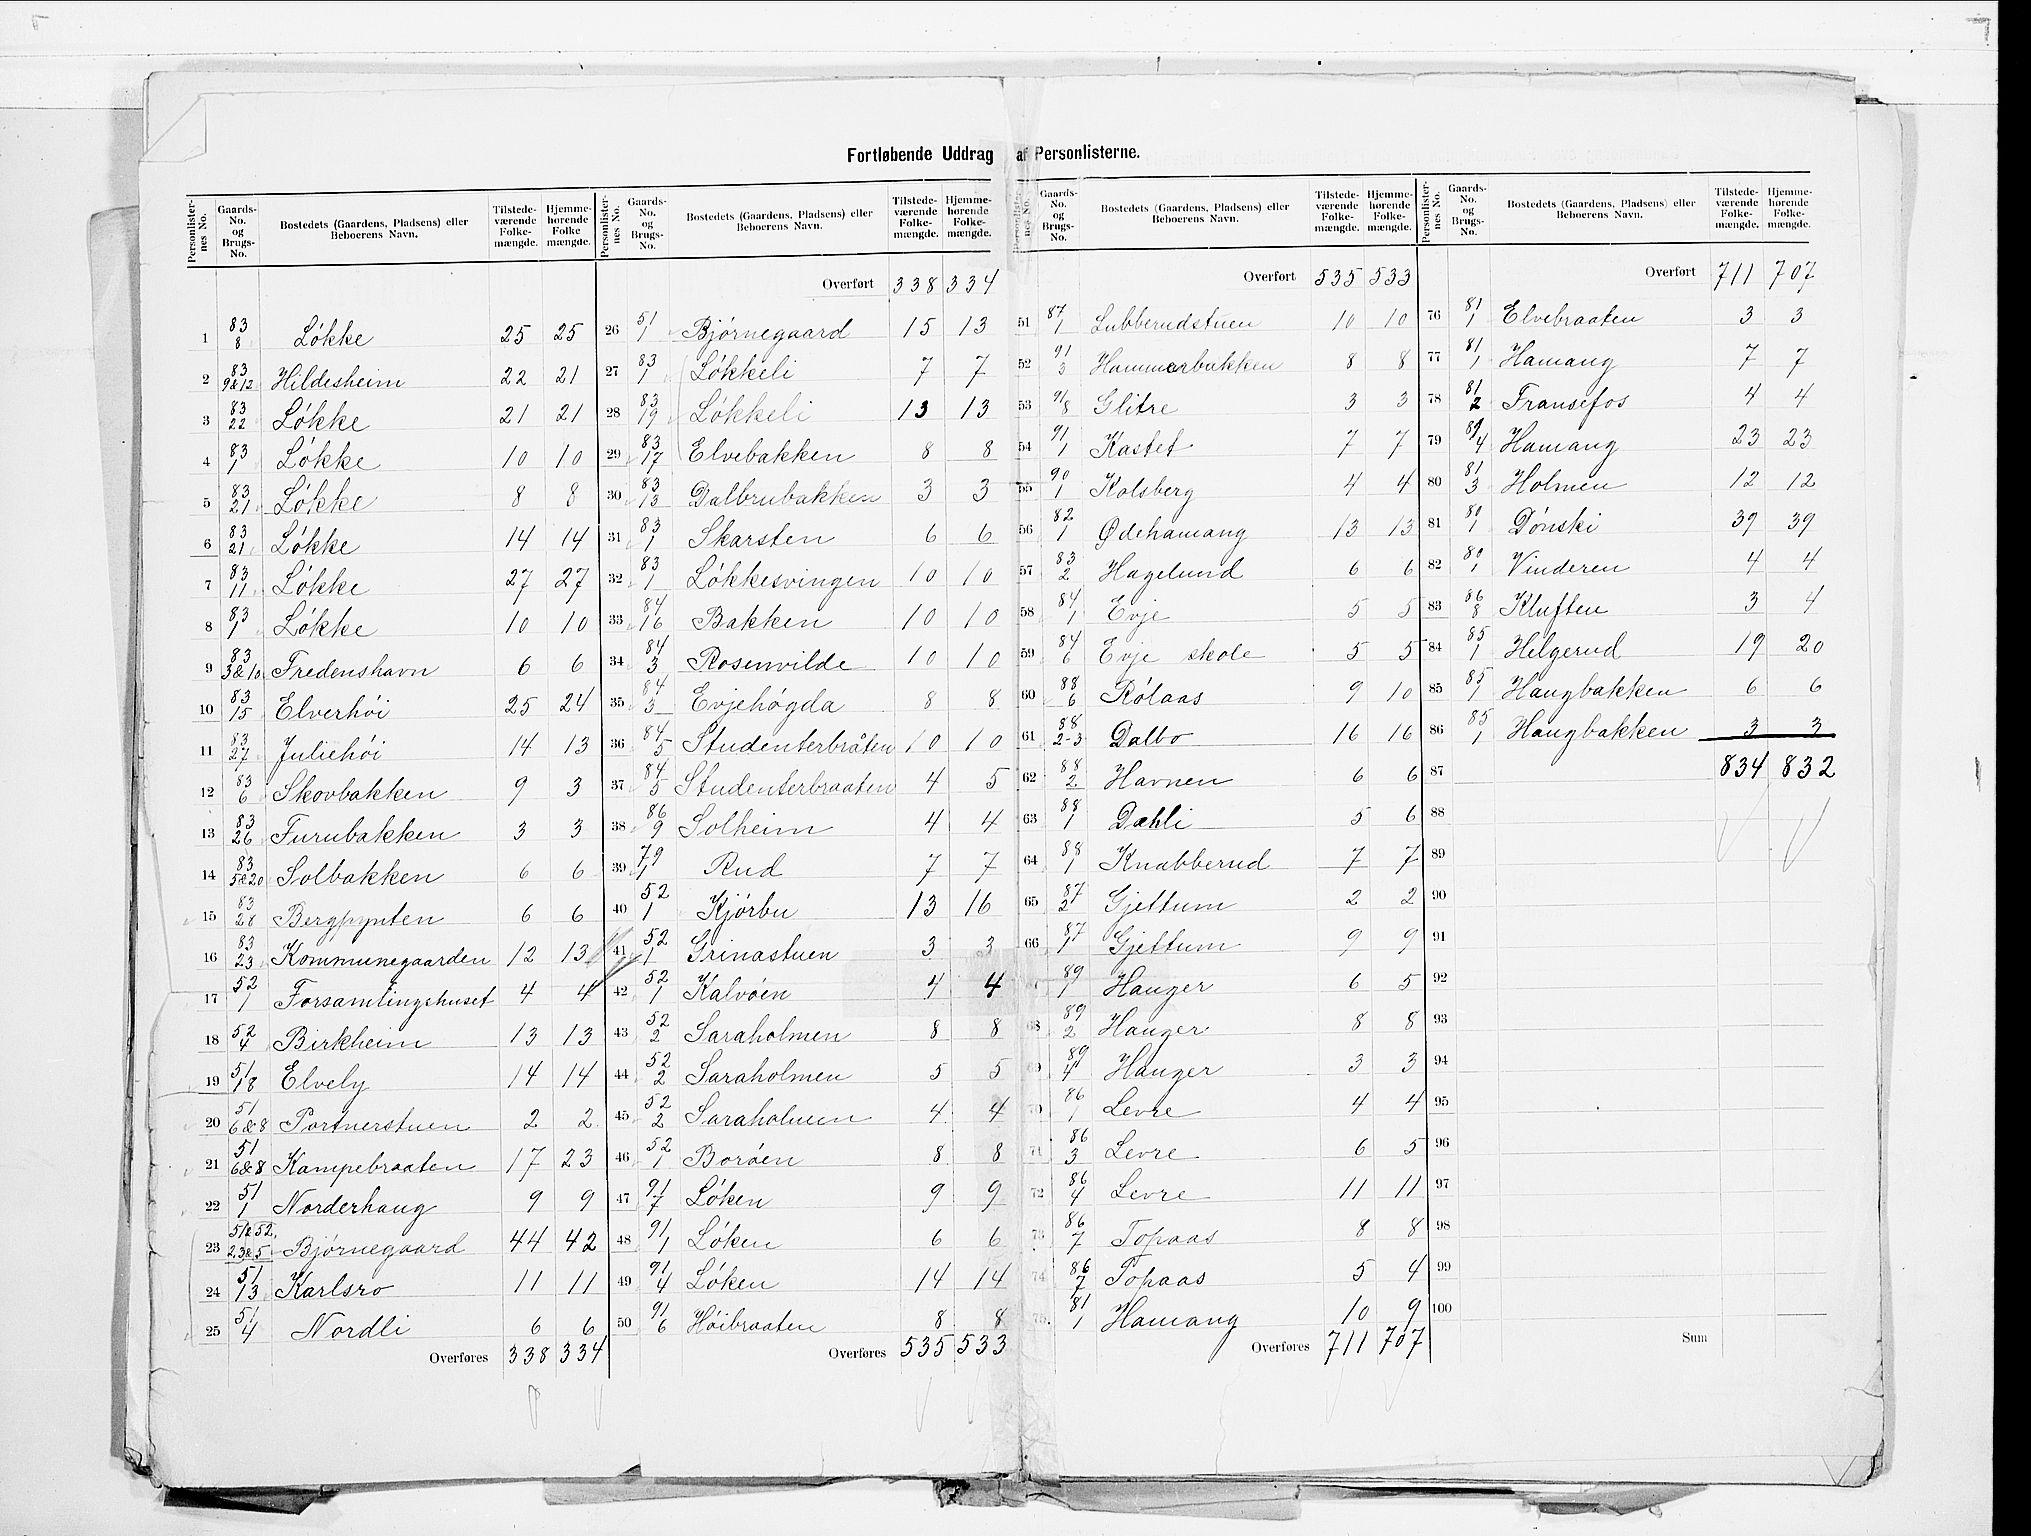 Fortløbende Uddrag af Personlisterne.
Personlister-nes No. | Gaards-No. og Brugs-No. | Bostedets (Gaardens, Pladsens) eller Beboerens Navn. | Tilstede-værende Folke-mængde. | Hjemme-hørende Folke-mængde.
1 83/8 Løkke 25 25
2 83/9&12 Hildesheim 22 21
3 83/22 Løkke 21 21
4 83/1 Løkke 10 10
5 83/21 Løkke 8 8
6 83/21 Løkke 14 14
7 83/11 Løkke 27 27
8 83/1 Løkke 10 10
9 83/3&10 Fredenshavn 6 6
10 83/15 Elverhöi 25 24
11 83/27 Juliehöi 14 13
12 83/6 Skovbakken 9 3
13 83/26 Furubakken 3 3
14 83/5&20 Solbakken 6 6
15 83/28 Bergpynten 6 6
16 83/23 Kommunegaarden 12 13
17 52/1 Forsamlingshuset 4 4
18 52/4 Birkheim 13 13
19 51/18 Elvely 14 14
20 51/6&8 Portnerstuen 2 2
21 51/6&8 Kampebraaten 17 23
22 51/1 Norderhaug 9 9
23 51&52/2,3&5 Bjørnegaard 44 42
24 51/13 Karlsro 11 11
25 51/4 Nordli 6 6
Overføres 338 334
Personlister-nes No. | Gaards-No. og Brugs-No. | Bostedets (Gaardens, Pladsens) eller Beboerens Navn. | Tilstede-værende Folke-mængde. | Hjemme-hørende Folke-mængde.
Overført 338 334
26 51/1 Bjørnegaard 15 13
27 83/1 Løkkeli 7 7
28 83/19 Løkkeli 13 13
29 83/17 Elvebakken 8 8
30 83/13 Dalbrubakken 3 3
31 83/1 Skarsten 6 6
32 83/1 Løkkesvingen 10 10
33 84/16 Bakken 10 10
34 84/3 Rosenvilde 10 10
35 84/3 Evjehøgda 8 8
36 84/5 Studenterbråten 10 10
37 84/5 Studenterbraaten 4 5
38 86/9 Solheim 4 4
39 79/1 Rud 7 7
40 52/1 Kjørbu 13 16
41 52/1 Grinastuen 3 3
42 52/1 Kalvöen 4 4
43 52/2 Saraholmen 8 8
44 52/2 Saraholmen 5 5
45 52/2 Saraholmen 4 4
46 52/1 Boröen 8 8
47 91/7 Løken 9 9
48 91/1 Løken 6 6
49 91/4 Løken 14 14
50 91/6 Höibraaten 8 8
Overføres 535 533
Personlister-nes No. | Gaards-No. og Brugs-No. | Bostedets (Gaardens, Pladsens) eller Beboerens Navn. | Tilstede-værende Folke-mængde. | Hjemme-hørende Folke-mængde.
Overført 535 533
51 87/1 Lubberudstuen 10 10
52 91/3 Hammerbakken 8 8
53 91/8 Glitre 3 3
54 91/1 Kastet 7 7
55 90/1 Kolsberg 4 4
56 82/1 Ødehamang 13 13
57 83/2 Hagelund 6 6
58 84/1 Evje 5 5
59 84/6 Evje skole 5 5
60 88/6 Rölaas 9 10
61 88/2-3 Dalbo 16 16
62 88/2 Havnen 6 6
63 88/1 Dæhli 5 6
64 88/1 Knabberud 7 7
65 87/2 Gjettum 2 2
66 87/1 Gjettum 9 9
89/1 Hauger 6 5
68 89/2 Hauger 8 8
69 89/4 Hauger 3 3
70 86/1 Levre 4 4
71 86/3 Levre 6 5
72 86/4 Levre 11 11
73 86/7 Topaas 8 8
74 86/7 Topaas 5 4
75 81/1 Hamang 10 9
Overføres 711 707
Personlister-nes No. | Gaards-No. og Brugs-No. | Bostedets (Gaardens, Pladsens) eller Beboerens Navn. | Tilstede-værende Folke-mængde. | Hjemme-hørende Folke-mængde.
Overført 711 707
76 81/1 Elvebraaten 3 3
77 81/1 Hamang 7 7
78 81/2 Fransefos 4 4
79 81/4 Hamang 23 23
80 81/3 Holmen 12 12
81 80/1 Dönski 39 39
82 80/1 Vinderen 4 4
83 86/8 Kluften 3 4
84 85/1 Helgerud 19 20
85 85/1 Haugbakken 6 6
86 85/1 Haugbakken 3 3
87 834 832
88
89
90
91
92
93
94
95
96
97
98
99
100
Sum